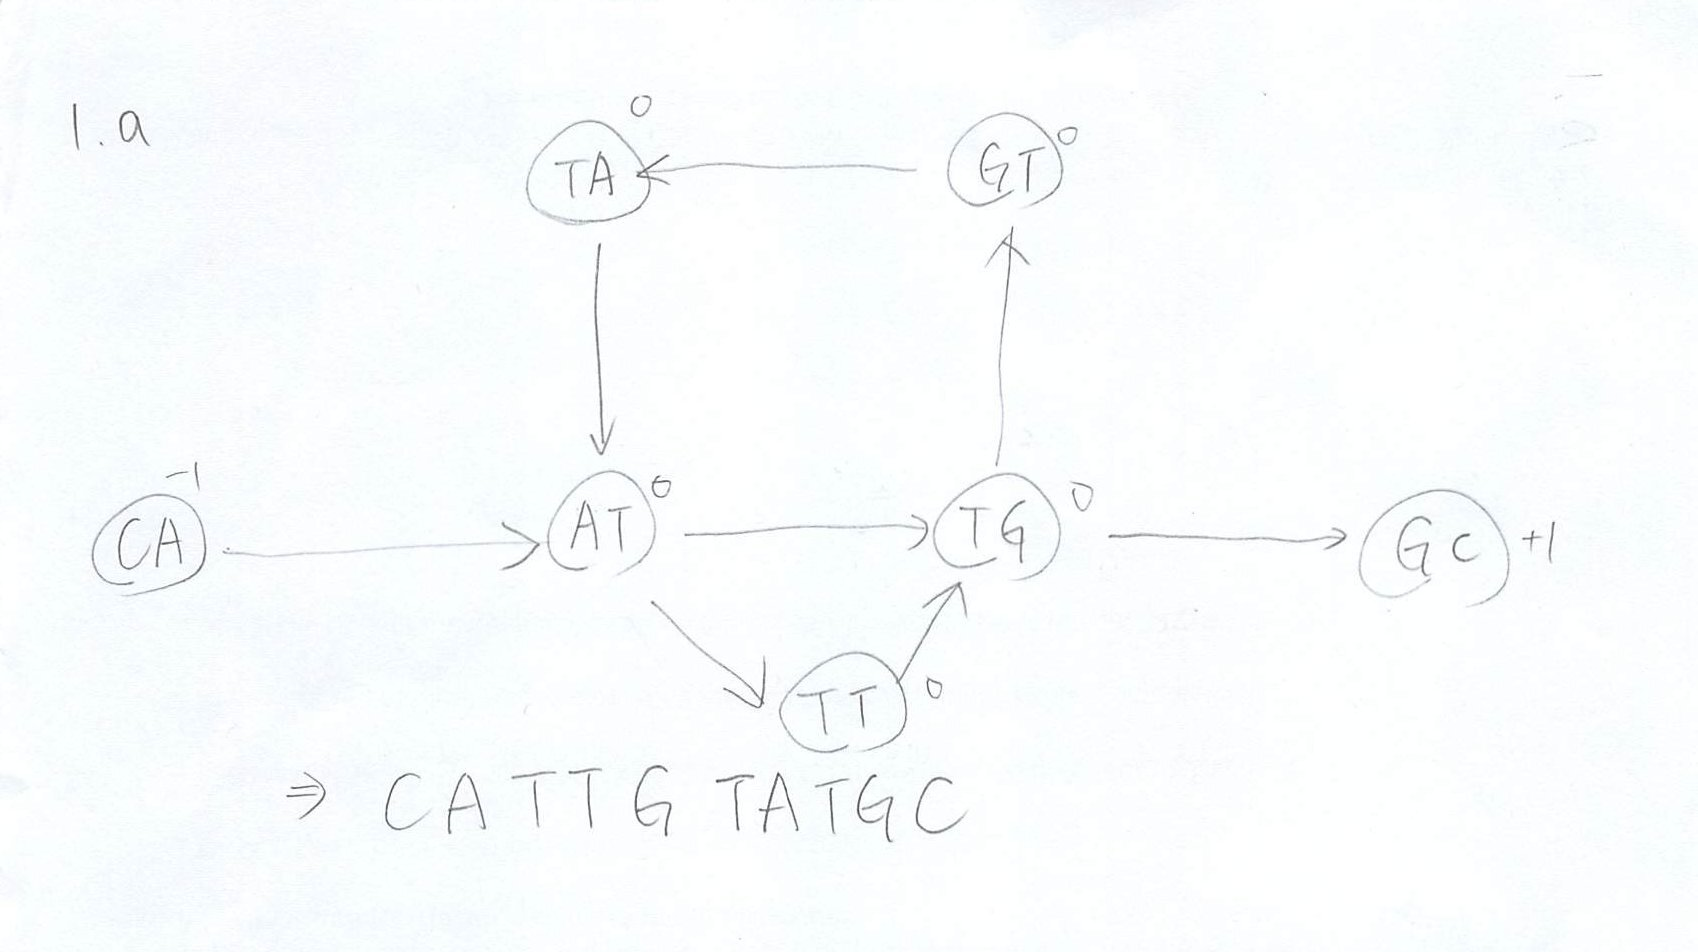 1.a
TA 0
GT 0
CA -1
AT 0
TG 0
GC +1
TT 0
⇒ CATTG TATGC